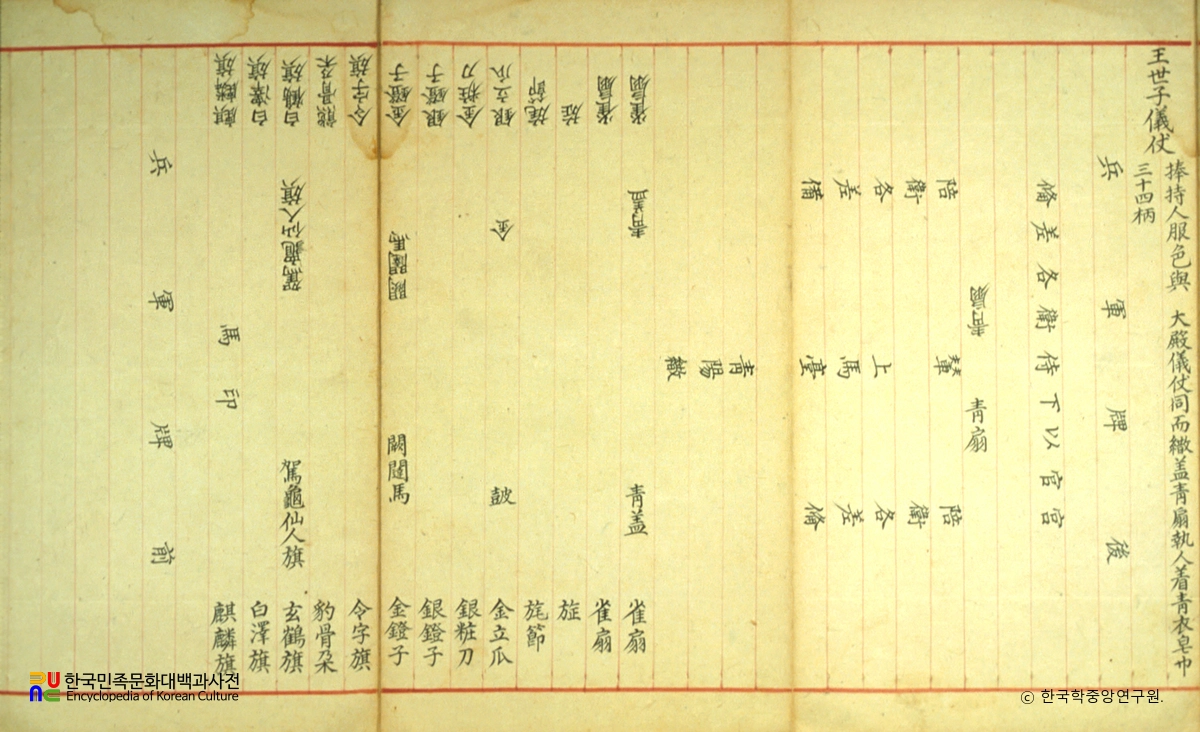 王世子儀仗
捧持人服色與 大殿儀仗同而繖盖青扇執人着青衣皂巾
三十四柄
兵 軍 牌 後
宮官以下侍衛各差備
青扇
青扇
陪衛各差備
輦
上馬臺
陪衛各差備
青陽繖
雀扇
青盖
青盖
雀扇
雀扇
雀扇
旌
旌
旄節
旄節
銀立瓜
金
鼓
金立瓜
金粧刀
銀粧刀
銀鐙子
銀鐙子
金鐙子
闕闥馬
闕闥馬
金鐙子
令字旗
令字旗
熊骨朶
豹骨朶
白鶴旗
駕龜仙人旗
駕龜仙人旗
玄鶴旗
白澤旗
白澤旗
麒麟旗
馬 印
麒麟旗
兵 軍 牌 前
한국민족문화대백과사전
Encyclopedia of Korean Culture
ⓒ 한국학중앙연구원.